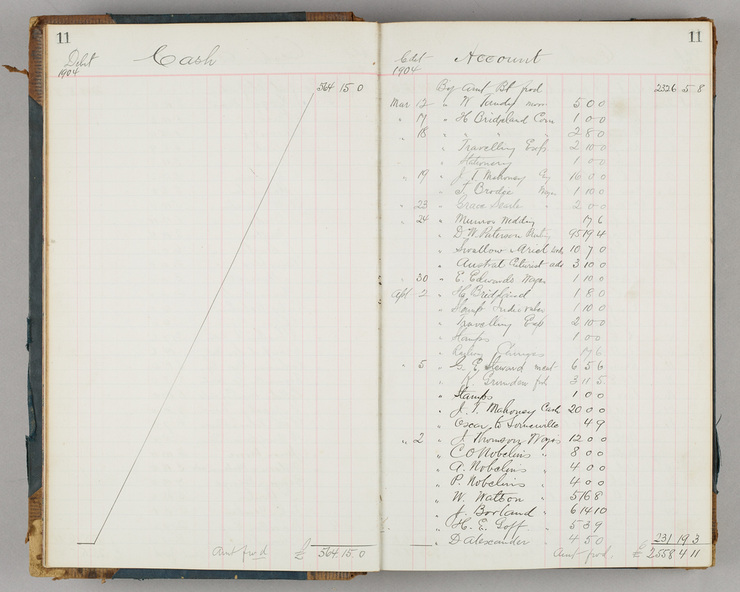 11
Debit Cash
1904
564 15 0
Amt frwd £ 564.15.0
11
Account
1904
By Amt Bt frod 2326 5 8
Mar 12 " W 5 0 0
" 17 " H Bridgland Com 1 0 0
" 18 " " " " 2 8 0
" Travelling Exps 2 10 0
" Stationery 1 0 0
" 19 " J. T. Mahoney 16 0 0
" Brodie Wages 1 10 0
" 23 " Grace " 2 0 0
" 24 " Munros Wedding 17 6
" D. W. Paterson 95 19 4
" Swallow & Ariel 10 7 0
" Austral ads 3 10 0
" 30 " E. Edwards Wages 1 10 0
Apl 2 " H. Bridgland 1 8 0
" Stamp 1 10 0
" Travelling Exp 2 10 0
" Stamps 1 0 0
" Charges 17 6
" 5 " G. E. Steward meat 6 5 6
" R. 3 11 5
" Stamps 1 0 0
" J. T. Mahoney Cash 20 0 0
" Oscar to Somerville 4 9
" 2 " J Thomson Wages 12 0 0
" C. O. Nobelius " 8 0 0
" A. Nobelius " 4 0 0
" P. Nobelius " 4 0 0
" W. Watson " 5 16 8
" J. Borland " 6 14 10
" H. E. Goff " 5 3 9
" D Alexander " 4 5 0 231 19 3
Amt frod. £ 2558 4 11